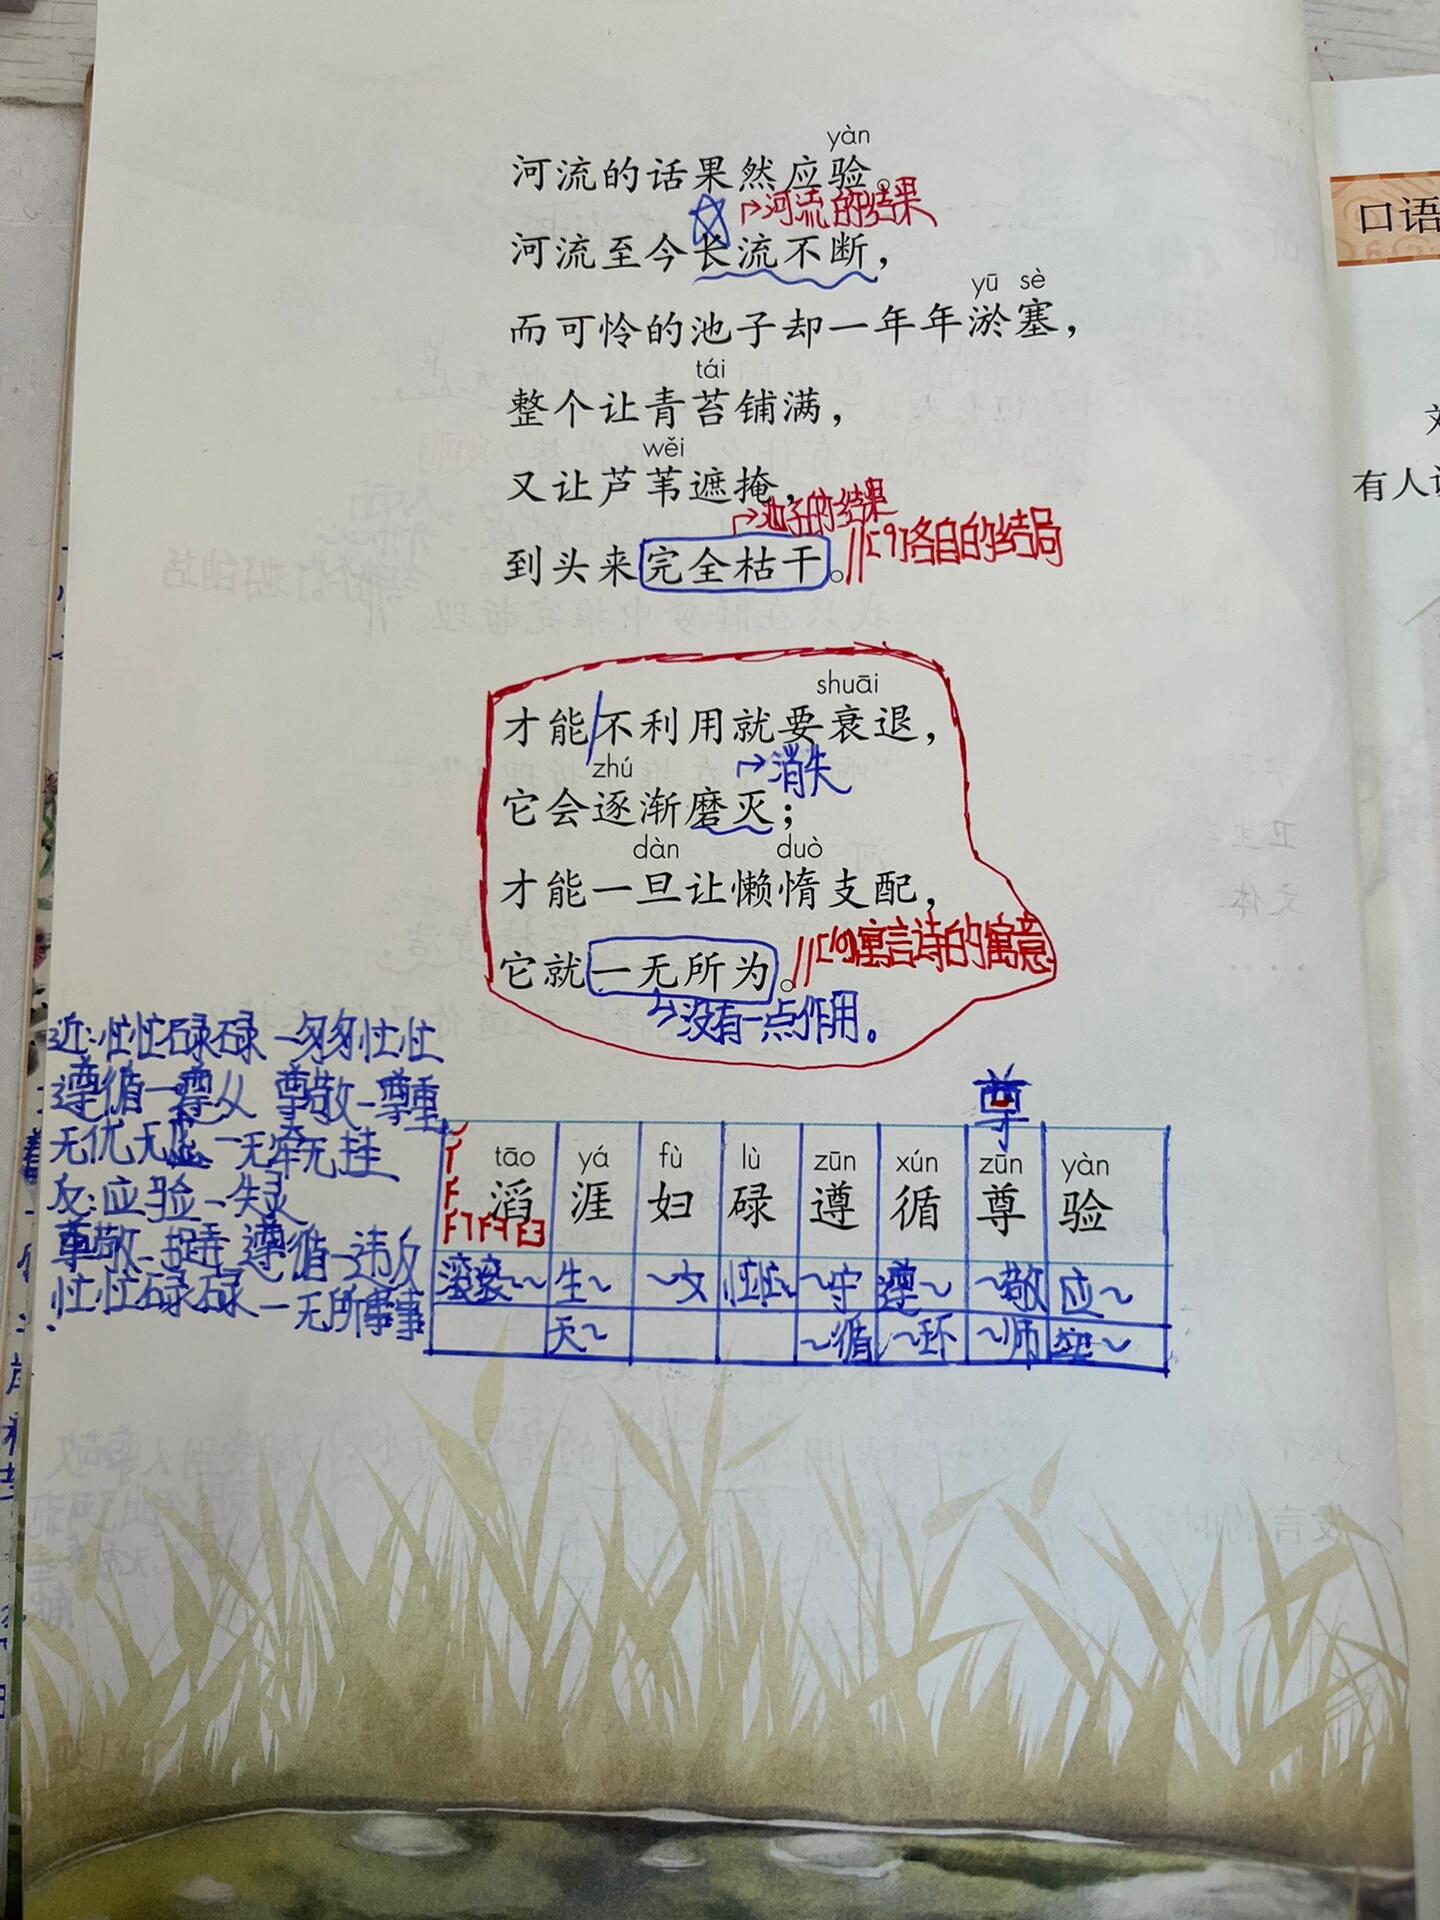 yàn
河流的话果然应验。
→河流的结果
河流至今长流不断，
yū sè
而可怜的池子却一年年淤塞，
tái
整个让青苔铺满，
wěi
又让芦苇遮掩，
→池子的结果
到头来完全枯干。 //[9]各自的结局
shuāi
才能/不利用就要衰退，
zhú →消失
它会逐渐磨灭；
dàn duò
才能一旦让懒惰支配，
它就一无所为。 //[10]寓言诗的寓意
→没有一点作用。
近:忙忙碌碌-匆匆忙忙
遵循-遵从 尊敬-尊重
无忧无虑-无牵无挂
反:应验-失灵
尊敬- 遵循-违反
忙忙碌碌-无所事事
尊
tāo yá fù lù zūn xún zūn yàn
滔 涯 妇 碌 遵 循 尊 验
滚滚~~ 生~ ~女 忙忙~ ~守 遵~ ~敬 应~
天~ ~循 ~环 ~师 实~
口语
有人